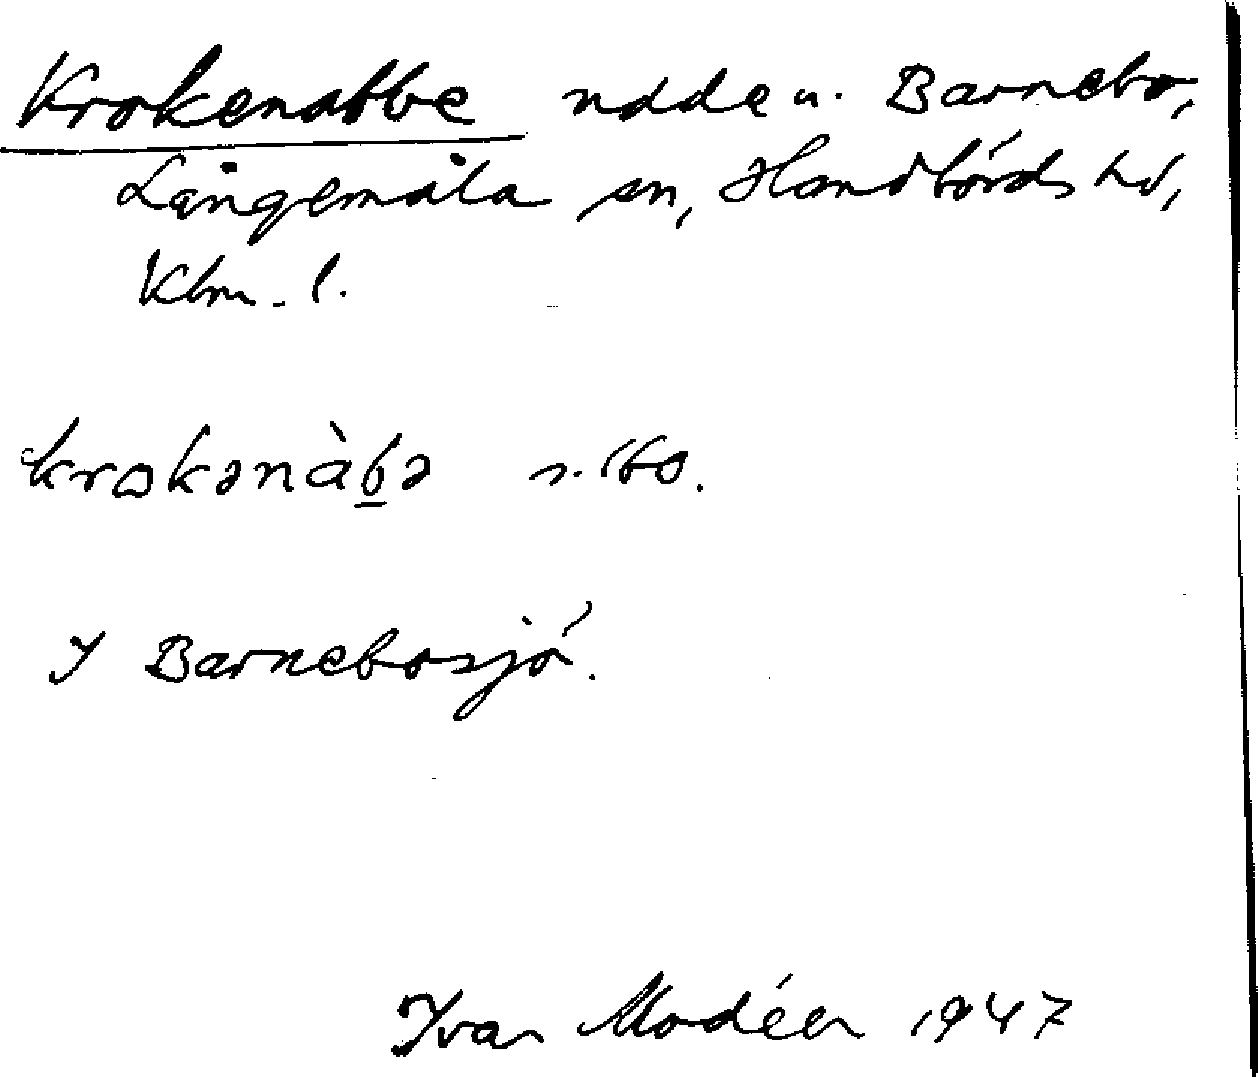 Krokenabbe udde u. Barnebo,
Långemåla sn, Handbörds hd,
Klm. l.
krokənàbə
I Barnebosjö.
Ivar Modéer 1947